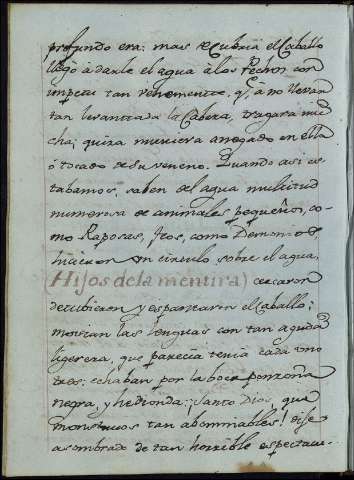 profundo era: mas se Cubria el Caballo
llegò à darle el agua à los Pechos con
impetu tan vehemente, q̃, à no llevar
tan levantada la Cabeza, tragara mu
cha; quiza muriera anegado en ella
ò tocado de su veneno. Quando asi es
tabamos, salen del agua multitud
numerosa de animales pequeños, co-
mo Raposas, feos, como Demonios
hicieron un circulo sobre el agua.
Hijos de la mentira) cercaron
y espantaron el Caballo;
movian las lenguas con tan aguda
ligereza, que parecia tenia cada uno
tres; echaban por la boca ponzoña
negra, y hedionda: ¡Santo Dios, que
monstruos tan abominables! dije
asombrado de tan horrible espectacu-